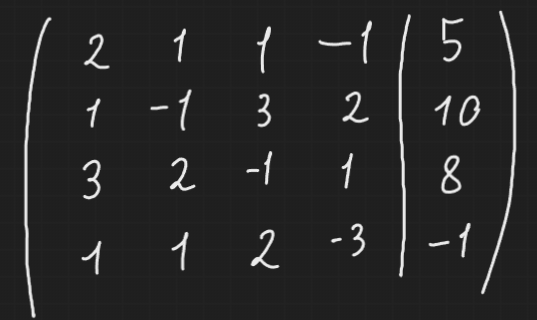 2 1 1 -1 | 5
1 -1 3 2 | 10
3 2 -1 1 | 8
1 1 2 -3 | -1